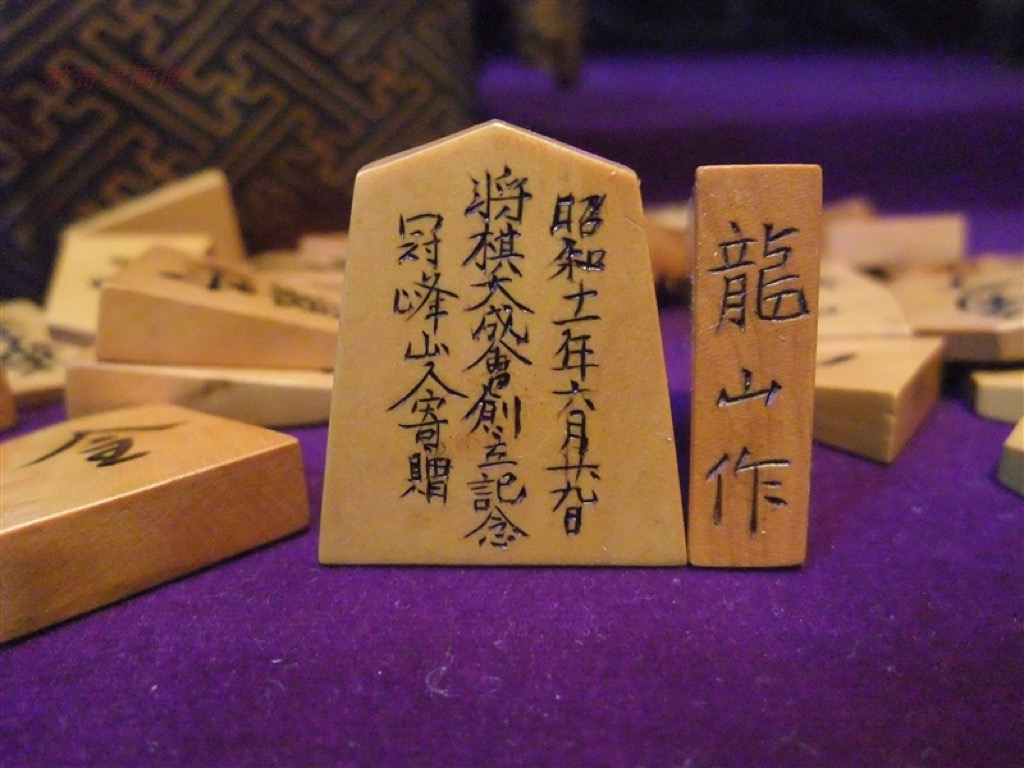 昭和十一年六月廿九日
将棋大成會創立記念
冠峰山人寄贈
龍山作